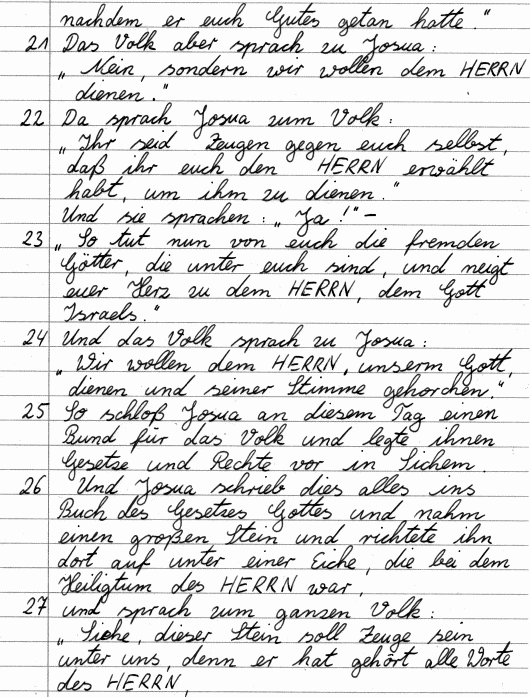 nachdem er euch Gutes getan hatte."
21 Das Volk aber sprach zu Josua:
„Nein, sondern wir wollen dem HERRN
dienen."
22 Da sprach Josua zum Volk:
„Ihr seid Zeugen gegen euch selbst,
daß ihr euch den HERRN erwählt
habt, um ihm zu dienen."
Und sie sprachen: „Ja!" –
23 „So tut nun von euch die fremden
Götter, die unter euch sind, und neigt
euer Herz zu dem HERRN, dem Gott
Israels."
24 Und das Volk sprach zu Josua:
„Wir wollen dem HERRN, unserm Gott,
dienen und seiner Stimme gehorchen."
25 So schloß Josua an diesem Tag einen
Bund für das Volk und legte ihnen
Gesetze und Rechte vor in Sichem.
26 Und Josua schrieb dies alles ins
Buch des Gesetzes Gottes und nahm
einen großen Stein und richtete ihn
dort auf unter einer Eiche, die bei dem
Heiligtum des HERRN war,
27 und sprach zum ganzen Volk:
„Siehe, dieser Stein soll Zeuge sein
unter uns, denn er hat gehört alle Worte
des HERRN,